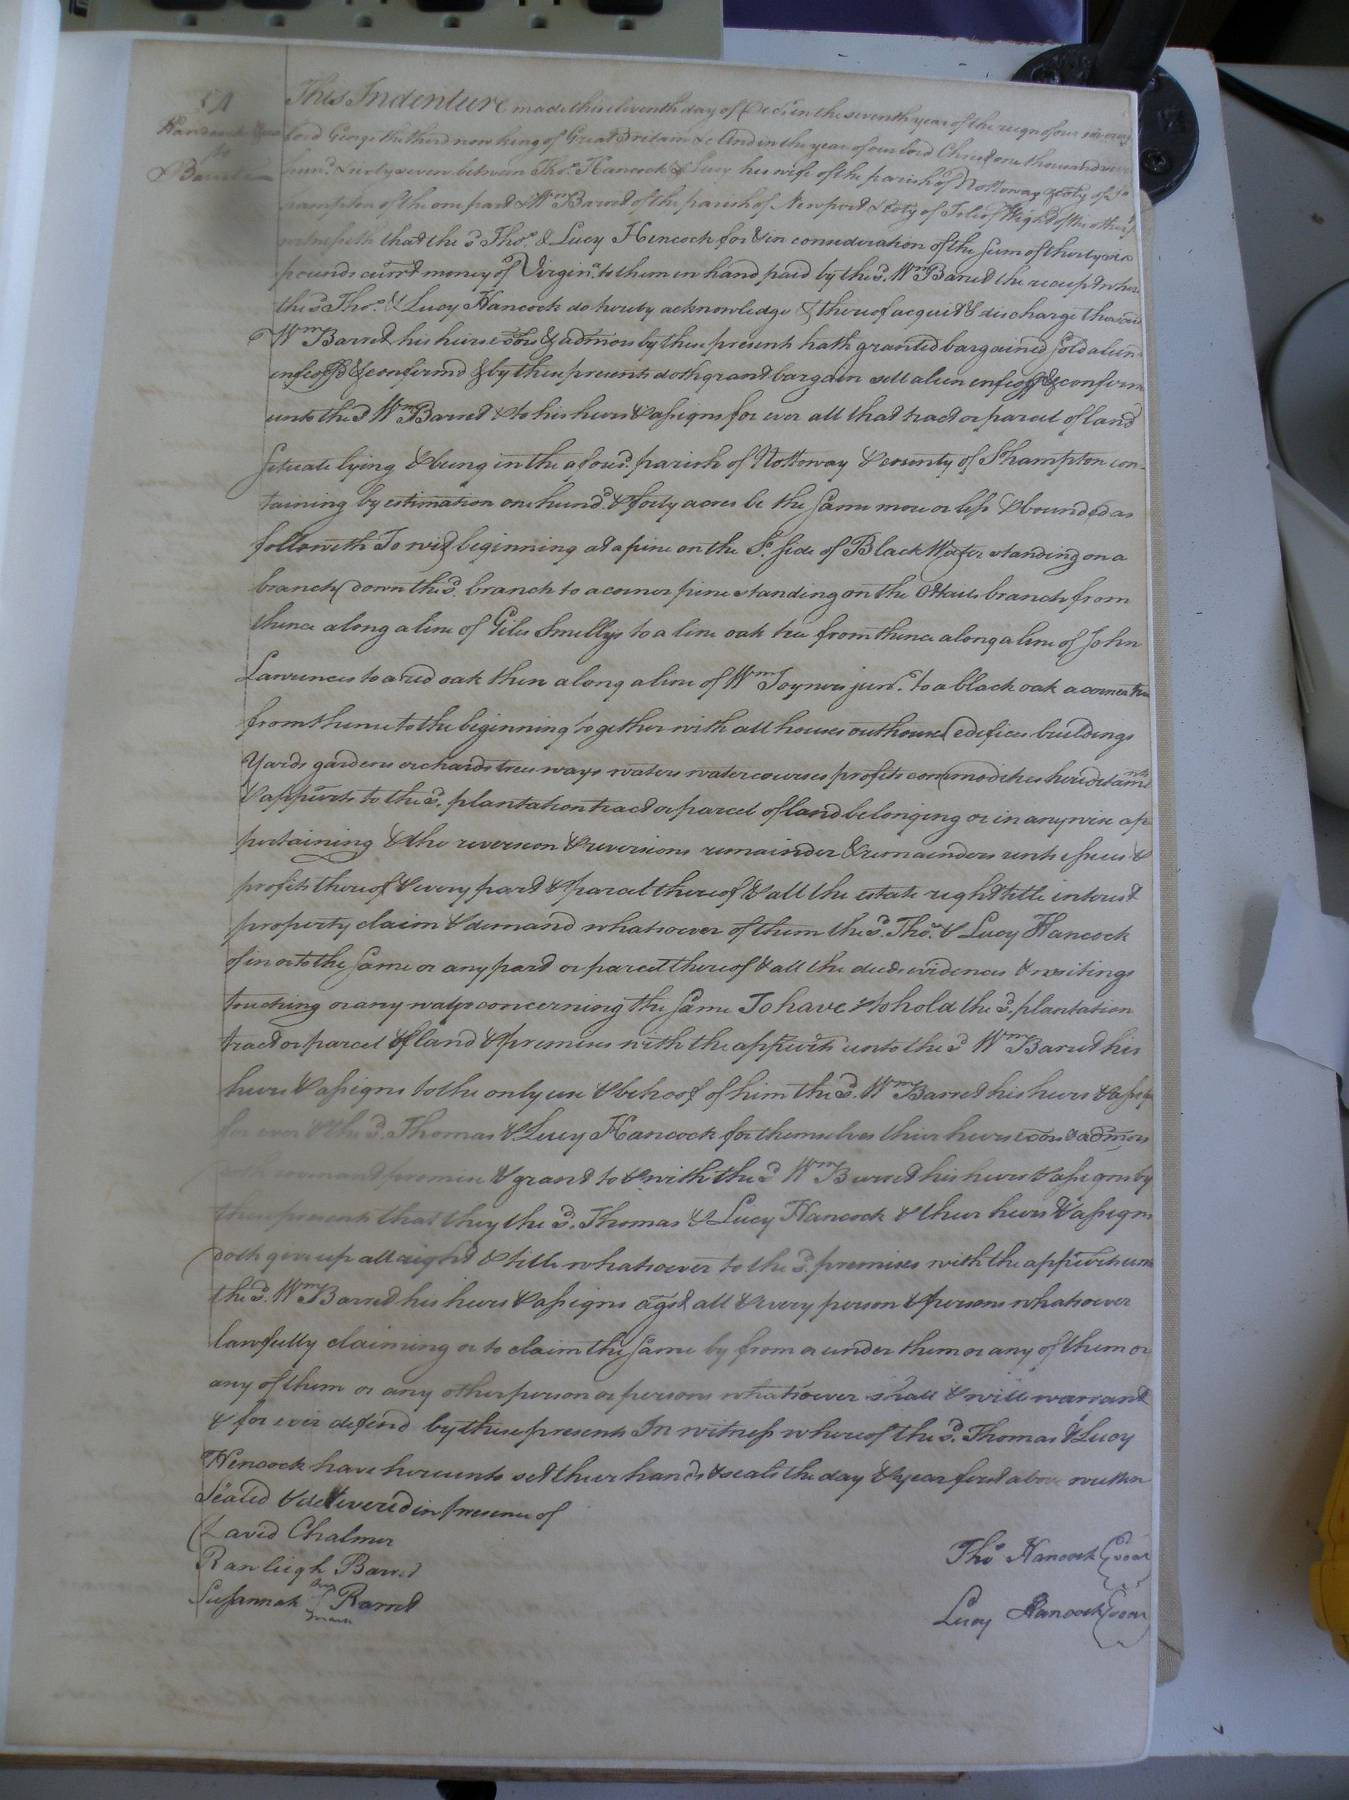 54
Hancock &ux
to
Barret
This Indenture made this eleventh day of Decr. in the seventh year of the reign of our sovereign
lord George the third now king of Great Britain &c And in the year of our lord Christ one thousand seven
hund. & sixty seven between Thos. Hancock & Lucy his wife of the parish of Nottoway & Coty of So
hampton of the one part & Wm Barret of the parish of Newport & Coty of Isle of Wight of the other
witnesseth that the sd. Thos. & Lucy Hencock for & in consideration of the sum of thirty six
pounds currt money of Virgina. to them in hand paid by the sd. Wm Barret the receipt where
the sd. Thos. & Lucy Hancock do hereby acknowledge & thereof acquit & discharge the said
Wm Barret his heirs exors & admors by these present hath granted bargained sold alien
enfeoffd & confirmd & by these presents doth grant bargain sell alien enfeoff & confirm
unto the sd Wm Barret & to his heirs & assigns for ever all that tract or parcel of land
Situate lying & being in the afousd. parish of Nottoway & county of Shampton con-
taining by estimation one hund. & forty acres be the same more or less & bounded as
followeth To wit beginning at a pine on the So. side of Black Water standing on a
branch down the sd. branch to a corner pine standing on the branch from
thence along a line of Giles Smellys to a line oak tree from thence along a line of John
Lawrences to a red oak then along a line of Wm Joyners junr. to a black oak a corner tree
from thence to the beginning together with all houses outhouses edifices buildings
Yards gardens orchards trees ways waters watercourses profits commodities hereditamts
& appurts to the sd. plantation tract or parcel of land belonging or in anywise ap
pertaining & the reverson & reversions remainder & remainders rents issues &
profits thereof & every part & parcel thereof & all the estate right title interest
property claim & demand whatsoever of them the sd. Thos. & Lucy Hancock
of in or to the same or any part or parcel thereof & all the deeds evidences & writings
touching or any ways concerning the same To have & to hold the sd. plantation
tract or parcel of land & premises with the appurts unto the sd Wm Barret his
heirs & assigns to the only use & behoof of him the sd. Wm Barret his heirs & assigns
for ever & the sd. Thomas & Lucy Hancock for themselves thier heirs exors & admors
doth covenant promise & grant to & with the sd Wm Barret his heirs & assigns by
these presents that they the sd. Thomas & Lucy Hancock & their heirs & assigns
doth give up all right & title whatsoever to the sd. premises with the appurts unto
the sd. Wm Barret his heirs & assigns agst all & every person & persons whatsoever
lawfully claiming or to claim the same by from or under them or any of them or
any of them or any other person or persons whatsoever shall & will warrant
& for ever defend by these presents In witness whereof the sd. Thomas & Lucy
Hencock have hereunto set their hands & seals the day & year first above written
Sealed & delivered in presence of
David Chalmer
Rawleigh Barret
Susannah her Barret
mark
Thos Hancock Seal
Lucy Hancock Seal